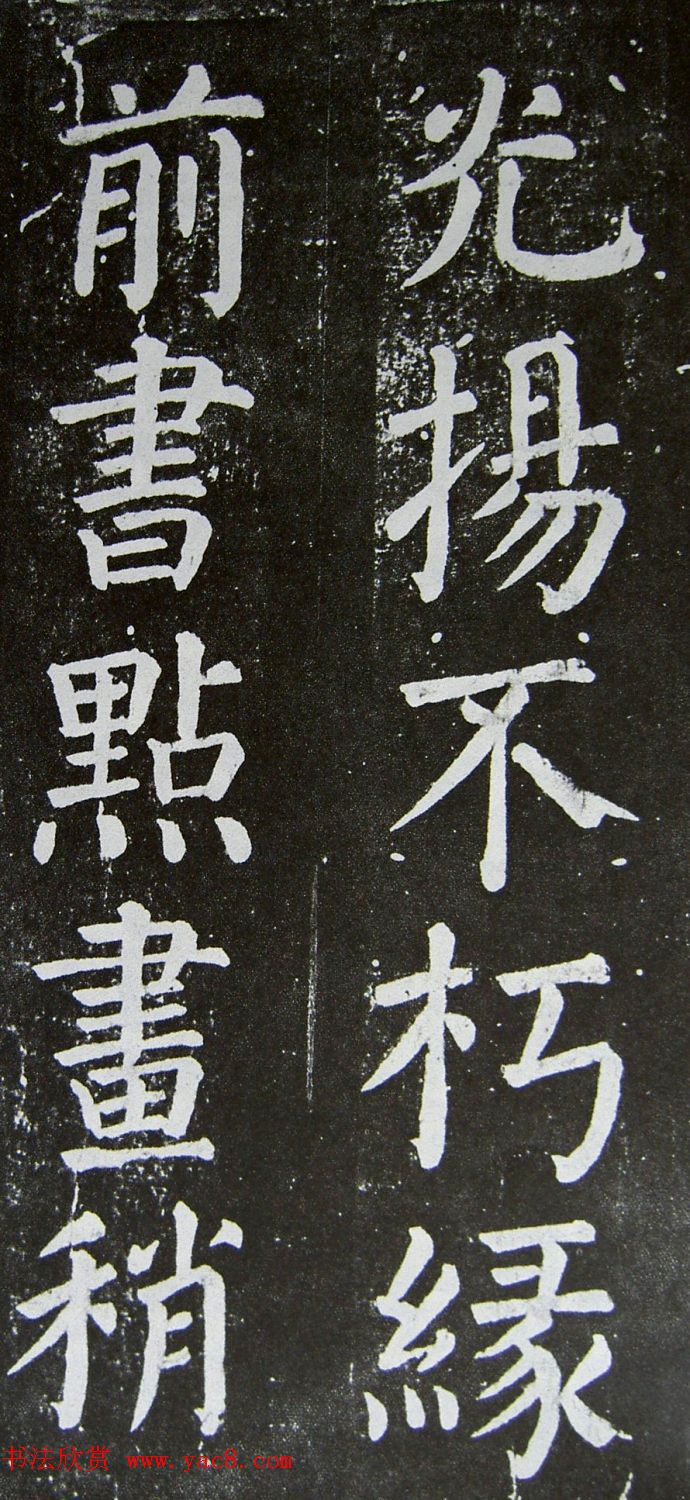 光揚不朽緣
前書點畫稍
书法欣赏 www.yac8.com